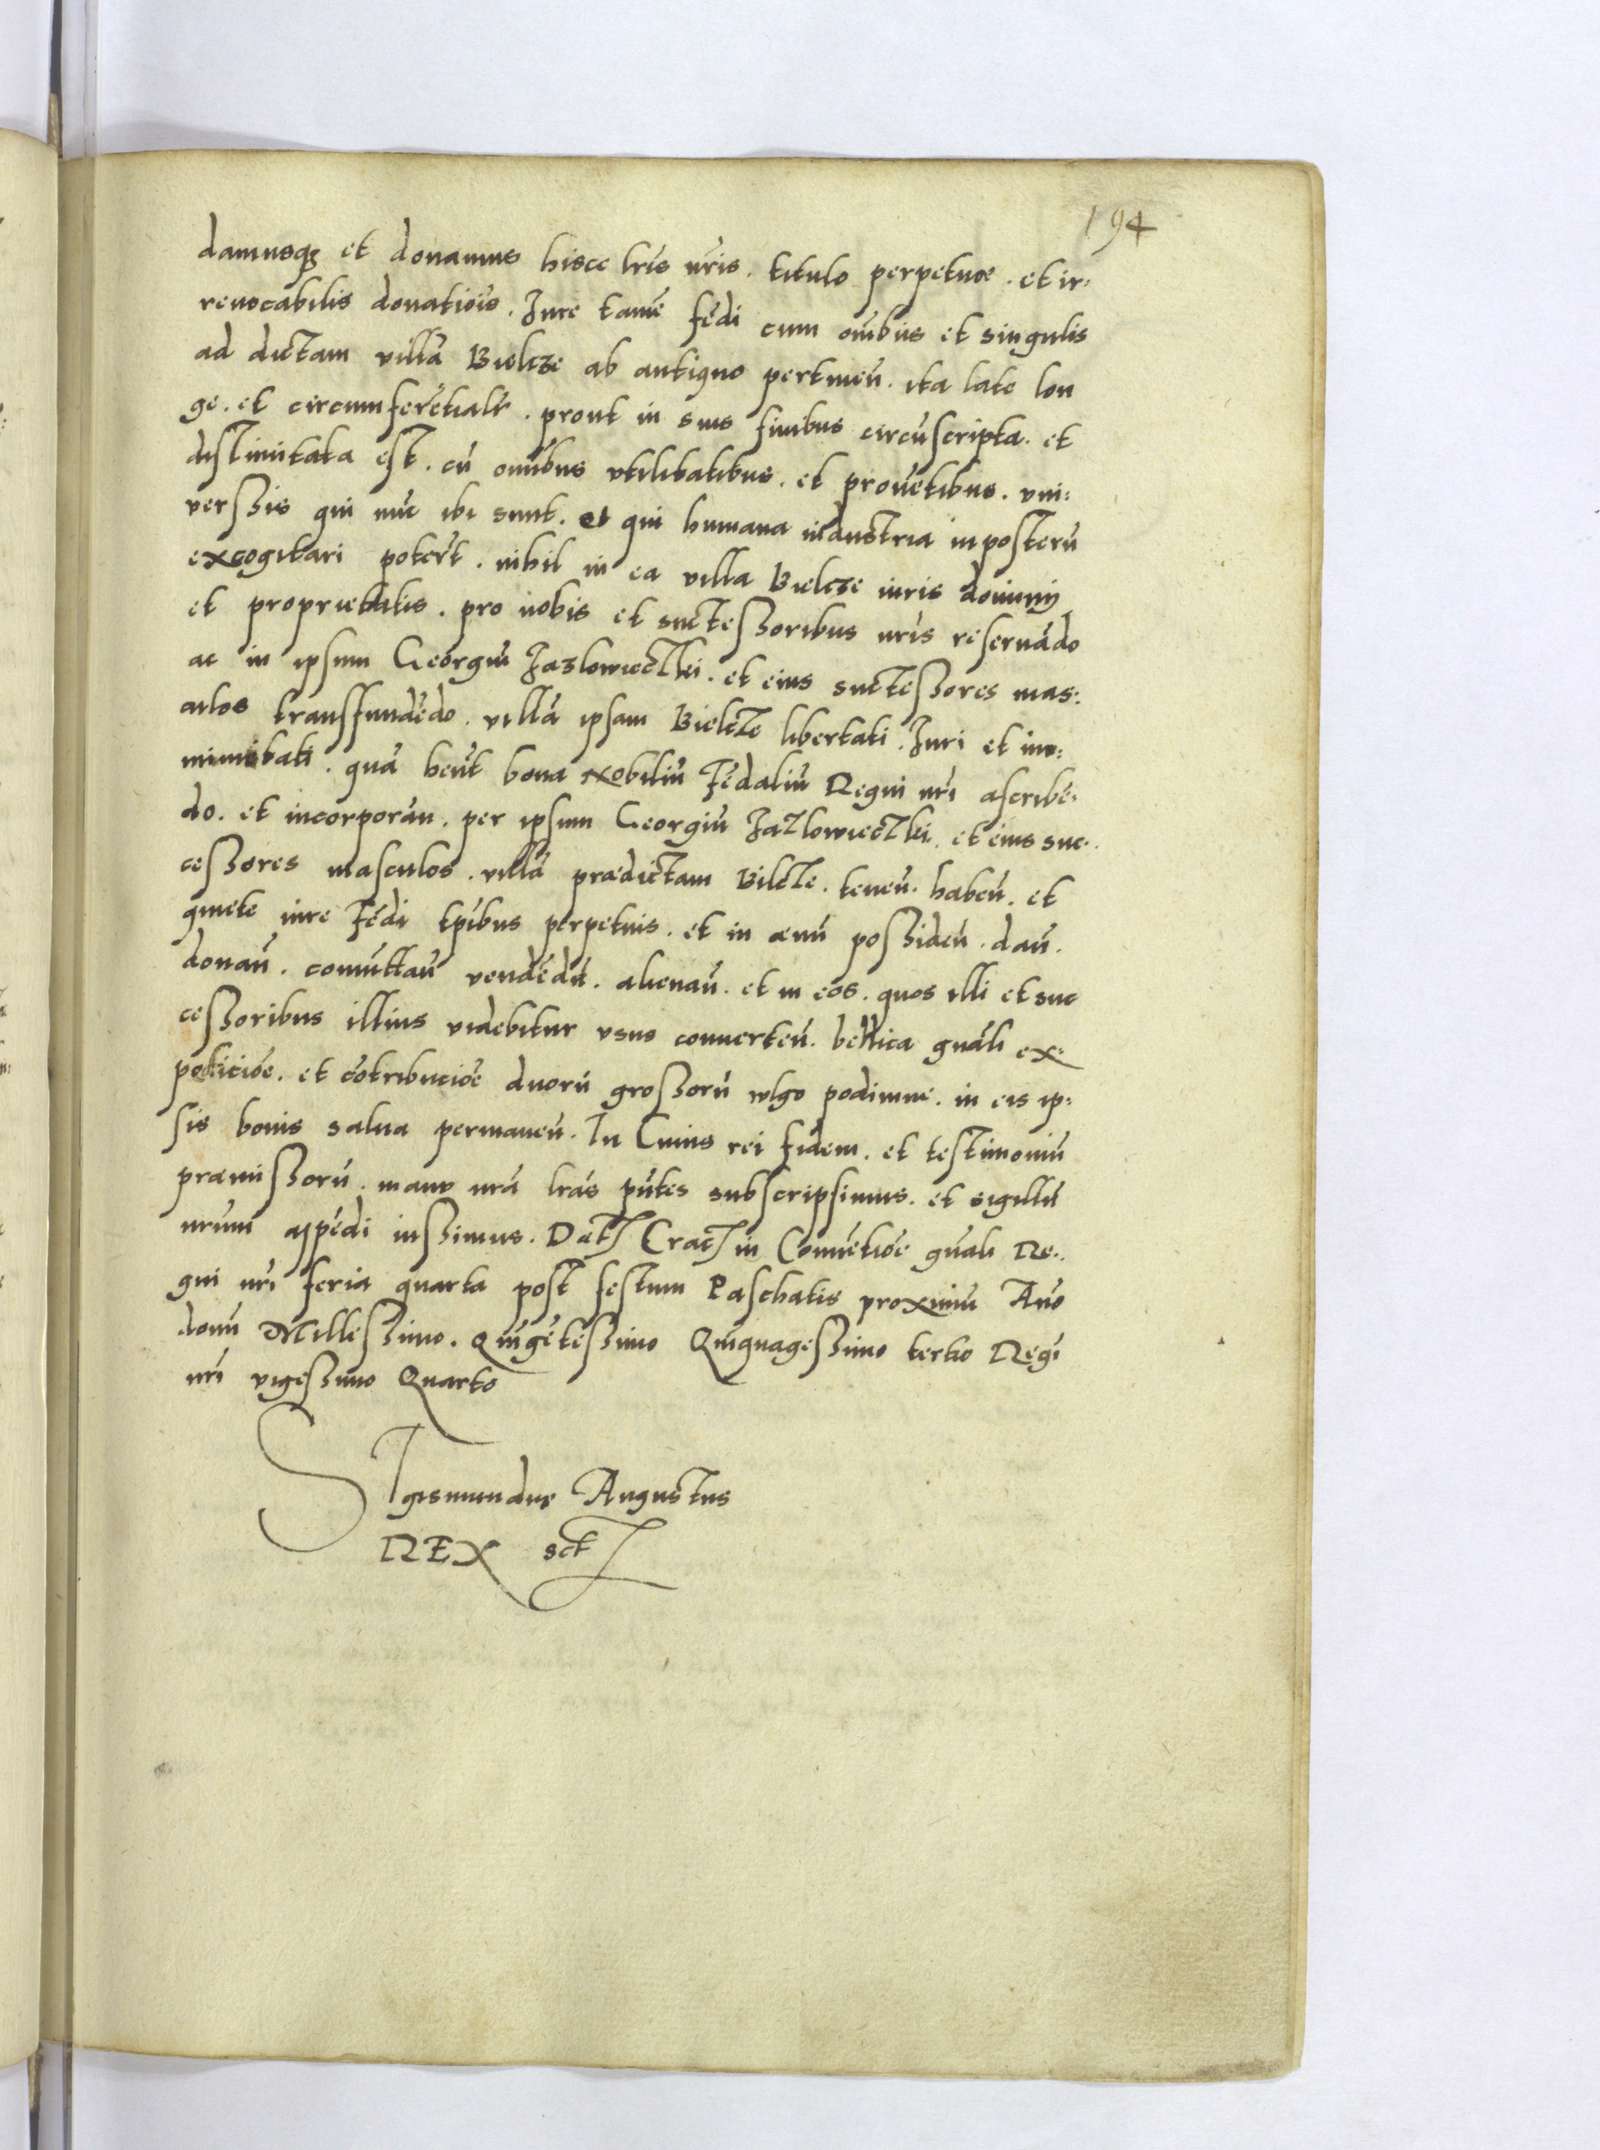 194
damusq3 et donamus hisce lr̃is nr̃is. titulo perpetuae. et ir:
reuocabilis donatiõis. Iure tamẽ fẽdi cum om̃ibus et singulis
ad dictam villã Bielcze ab antiquo pertineñ. ita late lon
ge. et circumferẽtialr̃. prout in suis finibus circũscripta. et
distimitata est. cũ om̃ibus vtilitatibus. et prouẽtibus. vni:
uerssis qui nũc ibi sunt. et qui humana industria inposterũ
excogitari poter̃t. nihil in ea villa Bielcze iuris dominij
et proprietatis. pro nobis et successoribus nr̃is reseruãdo
ac in ipsum Georgiũ Jazlowieczki. et eius successores mas:
culos transfundẽdo. villã ipsam Bielcze libertati. Iuri et im:
mimitati. quã hẽnt bona nobiliũ Fẽdaliũ Regni nr̃i ascribẽ:
do. et incorporãn. per ipsum Georgiũ Jazlowieczki. et eius suc:
cessores masculos. villã praedictam Bilcze. teneñ. habeñ. et
quiete iure Fẽdi tp̃ibus perpetuis. et in aeuũ possideñ. dañ.
donañ. comũttañ vendẽdũ. alienañ. et in eos. quos illi et suc
cessoribus illius videbitur vsus conuerteñ. bellica gñali ex:
peditiõe. et cõtribuciõe duorũ grossorũ wlgo podimne. in eis ip:
sis bonis salua permaneñ. In Cuius rei fidem. et testimoniũ
praemissorũ. manu nr̃a lr̃as pñtes subscripsimus. et sigillũ
nr̃um appẽdi iussimus. Dat Crac in Conuẽtiõe gñali Re:
gni nr̃i feria quarta post festum Paschatis proximũ Año
domĩ Millessimo. Quĩgẽtessimo Quĩquagessimo tertio Regĩ
nr̃i vigessimo Quarto
SIgismundus Augustus
REX sct